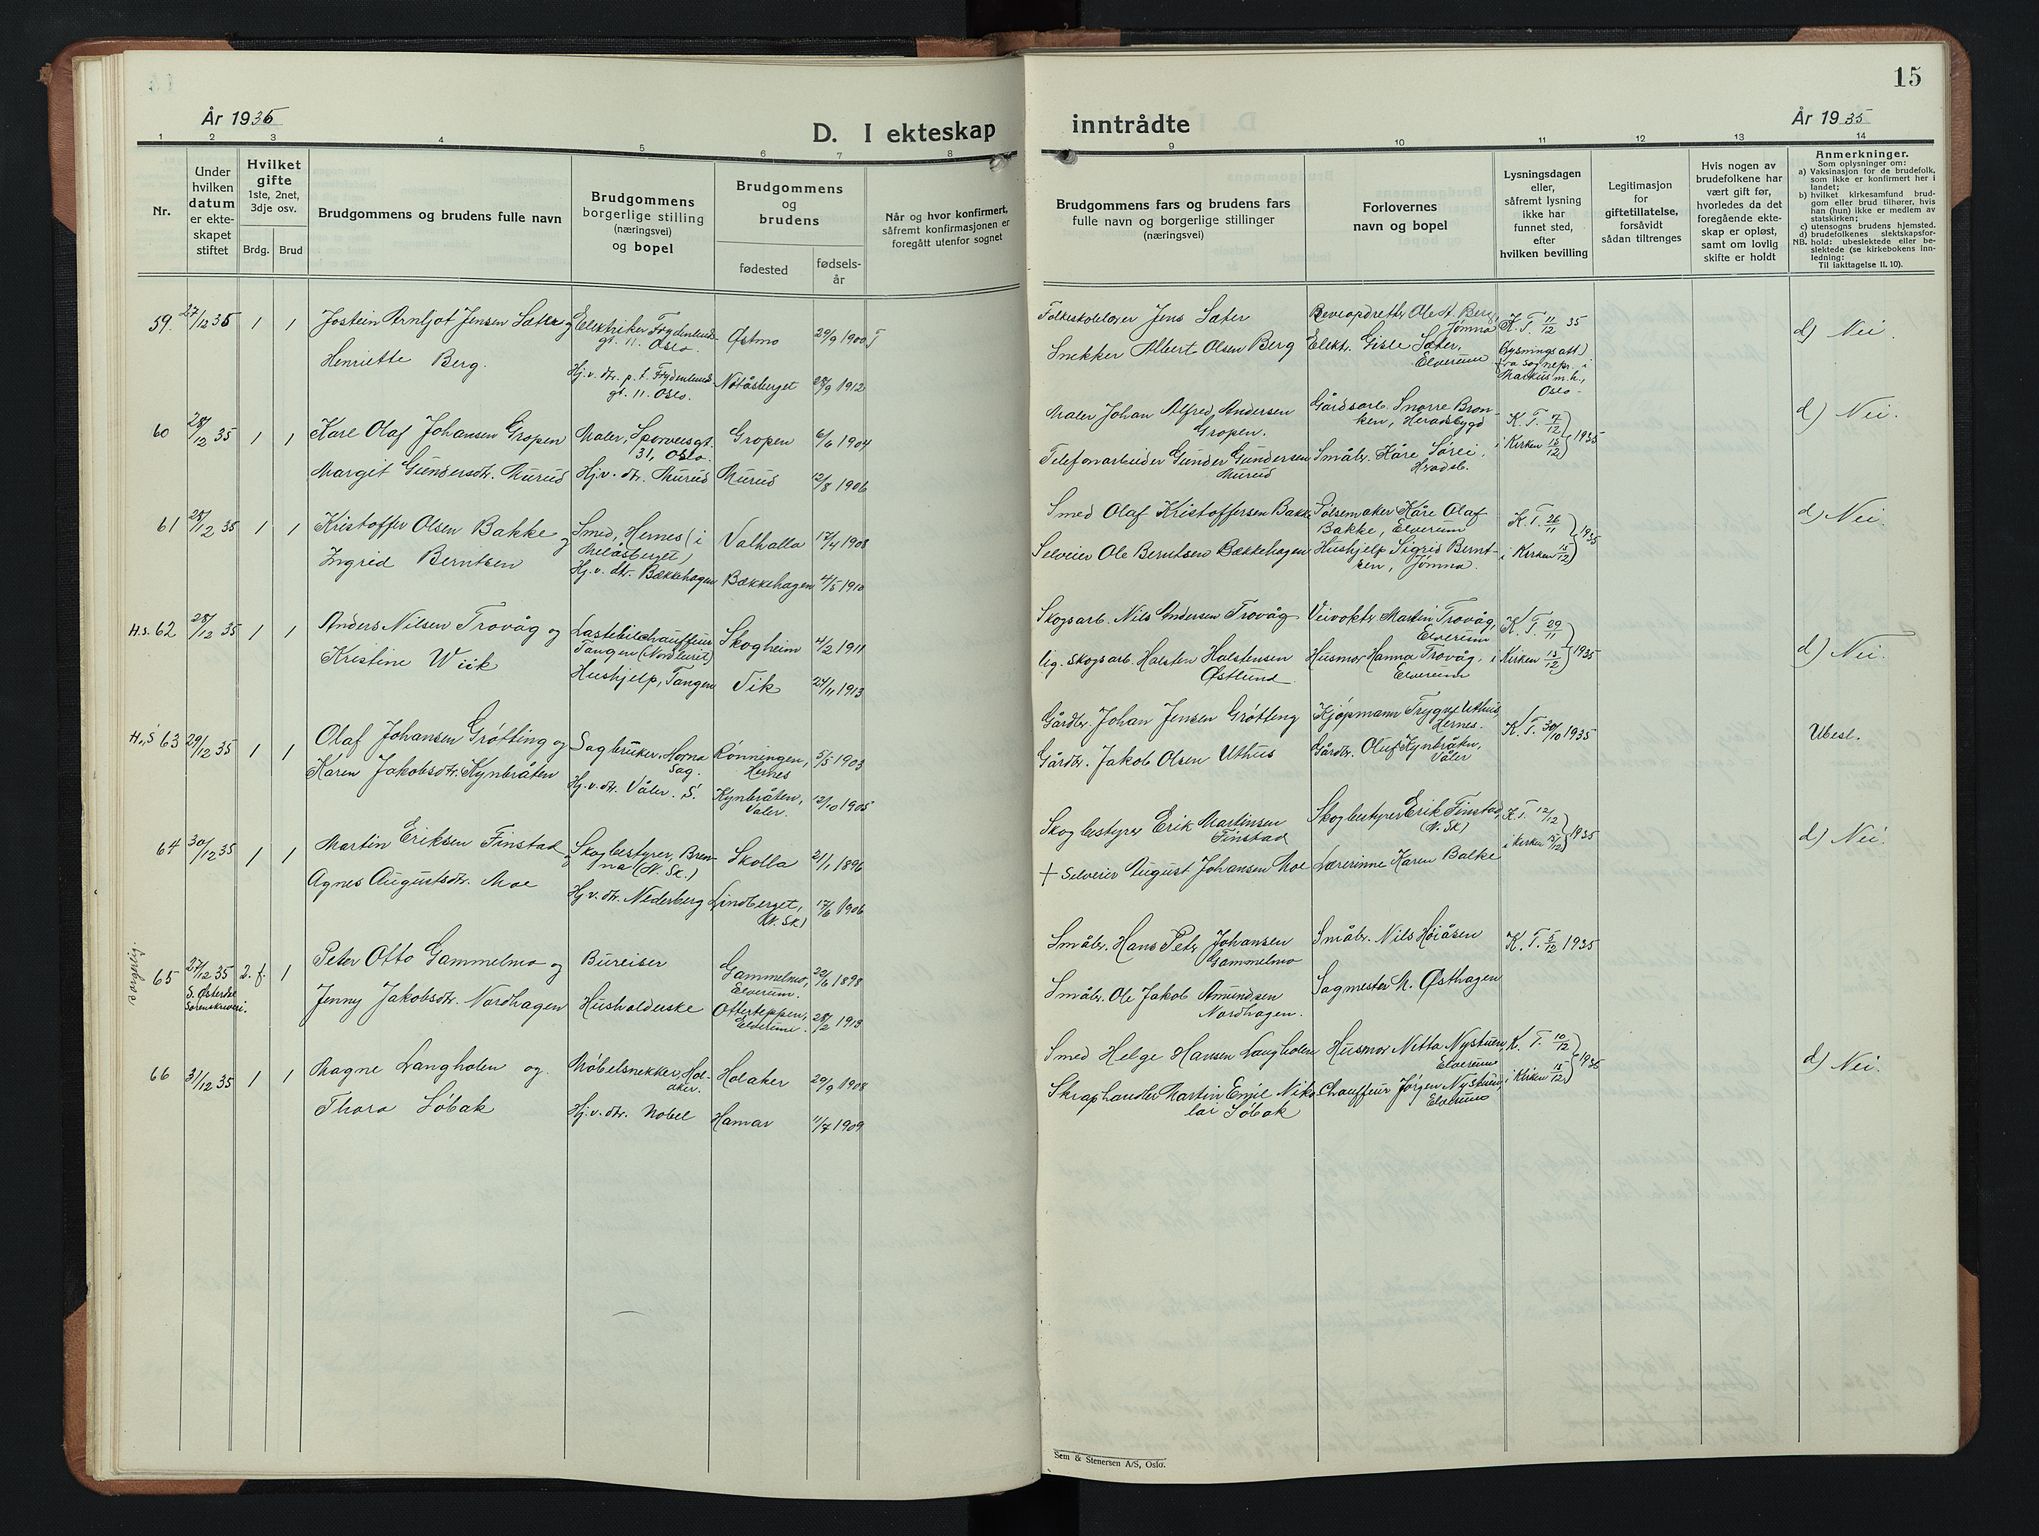 År 1935
D. I ekteskap
1 2 3 4 5 6 7 8
Nr.
Under hvilken datum er ekteskapet stiftet
Hvilket gifte 1ste, 2net, 3dje osv.
Brdg. Brud
Brudgommens og brudens fulle navn
Brudgommens borgerlige stilling (næringsvei) og bopel
Brudgommens og brudens
fødested
fødselsår
Når og hvor konfirmert, såfremt konfirmasjonen er foregått utenfor sognet
59. 27/12 35 1 1 Jostein Arnljot Jensen Sæter og Elektriker Frydenlundgt. 11. Oslo. Østmo 29/9 1900
Henriette Berg. Hj.v. dtr. p.t. Frydenlundgt. 11. Oslo. Nøtåsberget 28/9 1912
60 28/12 35 1 1 Kåre Olaf Johansen Gropen Maler, Sporveisgt. 31, Oslo. Gropen 6/6 1904
Marget Gundersdtr. Murud Hj.v. dtr. Murud Murud 12/8 1906
61 28/12 35 1 1 Kristoffer Olsen Bakke og Smed, Hernes (i Meiåsberget) Valhalla 17/4 1908
Ingrid Berntsen Hj.v. dtr. Bækkehagen Bækkehagen 4/5 1910
H.s. 62 28/12 35 1 1 Anders Nilsen Trovåg og Lastebilchauffeur Tangen (Nordturit) Skogheim 4/2 1911
Kristine Wiik Hushjelp, Tangen Vik 27/11 1913
H.s 63 29/12 35 1 1 Olaf Johansen Grøtting og Sagbruker, Horna Sag. Rønningen, Hernes 5/5 1903
Karen Jakobsdtr. Kynbråten Hj.v. dtr. Våler. S. Kynbråten, Våler. 12/10 1905
64 30/12 35 1 1 Martin Eriksen Finstad og Skogbestyrer, Brenna (N. Sk.) Skolla 21/1 1896
Agnes Augustsdtr. Moe Hj.v. dtr. Nederberg Lindberget, (N. Sk) 17/6 1906
borgerlig.
65 27/12 35 2. f. 1 Peter Otto Gammelmo og Bureiser Gammelmo, Elverum. 20/6 1898
S. Østerdal Sorenskriveri. Jenny Jakobsdtr. Nordhagen Husholderske Otterteppen, Elverum. 28/2 1913
66 31/12 35 1 1 Magne Langholen og Møbelsnekker, Holaker. Holaker 29/9 1908
Thora Søbak Hj.v. dtr. Nobel Hamar 11/7 1909
15
inntrådte
År 1935
9 10 11 12 13 14
Brudgommens fars og brudens fars fulle navn og borgerlige stillinger (næringsvei)
Forlovernes navn og bopel
Lysningsdagen eller, såfremt lysning ikke har funnet sted, efter hvilken bevilling
Legitimasjon for giftetillatelse, forsåvidt sådan tiltrenges
Hvis nogen av brudefolkene har vært gift før, hvorledes da det foregående ekteskap er opløst, samt om lovlig skifte er holdt
Anmerkninger.
Som oplysninger om:
a) Vaksinasjon for de brudefolk, som ikke er konfirmert her i landet;
b) hvilket kirkesamfund brudgom eller brud tilhører, hvis han (hun) ikke er medlem av statskirken;
c) utensogns brudens hjemsted.
d) brudefolkenes slektskapsforhold: ubeslektede eller beslektede (se kirkebokens innledning:
NB.
Til iakttagelse II. 10).
Folkeskolelærer Jens Sæter Reveopdretter Ole A. Berg, Jømna K. T. 11/12 35 d) Nei.
Snekker Albert Olsen Berg Elektr. Gisle Sæter, Elverum (Lysningsatt. fra sognepr. i Markus m.h., Oslo.
Maler Johan Alfred Andersen Gropen. Gårdsarb. Snorre Bronken, Heradsbygd K. T. 7/12 d) Nei.
Telefonarbeider Gunder Gundersen Murud Småbr. Kåre Sørei, Hradsb. i Kirken 15/12 1935
Smed Olaf Kristoffersen Bakke Pølsemaker Kåre Olaf Bakke, Elverum K. T. 26/11 1935 d) Nei.
Selveier Ole Berntsen Bækkehagen Hushjelp Sigrid Berntsen, Jømna. i Kirken 15/12
Skogsarb. Nils Andersen Trovåg Veivokter Martin Trovåg, Elverum K. T. 29/11
lig. Skogsarb. Halsten Halstensen Østlund Husmor Hanna Trovåg, Elverum i Kirken 15/12 1935 d) Nei.
Gårdbr. Johan Jensen Grøtting Kjøpmann Trygve Uthus, Hernes. K. T. 30/10 1935 Ubesl.
Gårdbr. Jakob Olsen Uthus Gårdbr. Oluf Kynbråten, Våler
Skogbestyrer Erik Martinsen Finstad Skogbestyrer Erik Finstad, (N. Sk) K. T. 12/12 1935 d) Nei.
+ Selveier August Johansen Moe Lærerinne Karen Balke i Kirken 15/12
Småbr. Hans Petr Johansen Gammelmo Småbr. Nils Høiåsen K. T. 5/12 1935
Småbr. Ole Jakob Amundsen Nordhagen. Sagmester M. Østhagen
Smed Helge Hansen Langholen Husmor Nitta Nystuen, Elverum K. T. 10/12 1935 d) Nei.
Skraphandler Martin Emil Nikolai Søbak Chauffeur Jørgen Nystuen Elverum i Kirken 15/12
Sem & Stenersen A/S, Oslo.